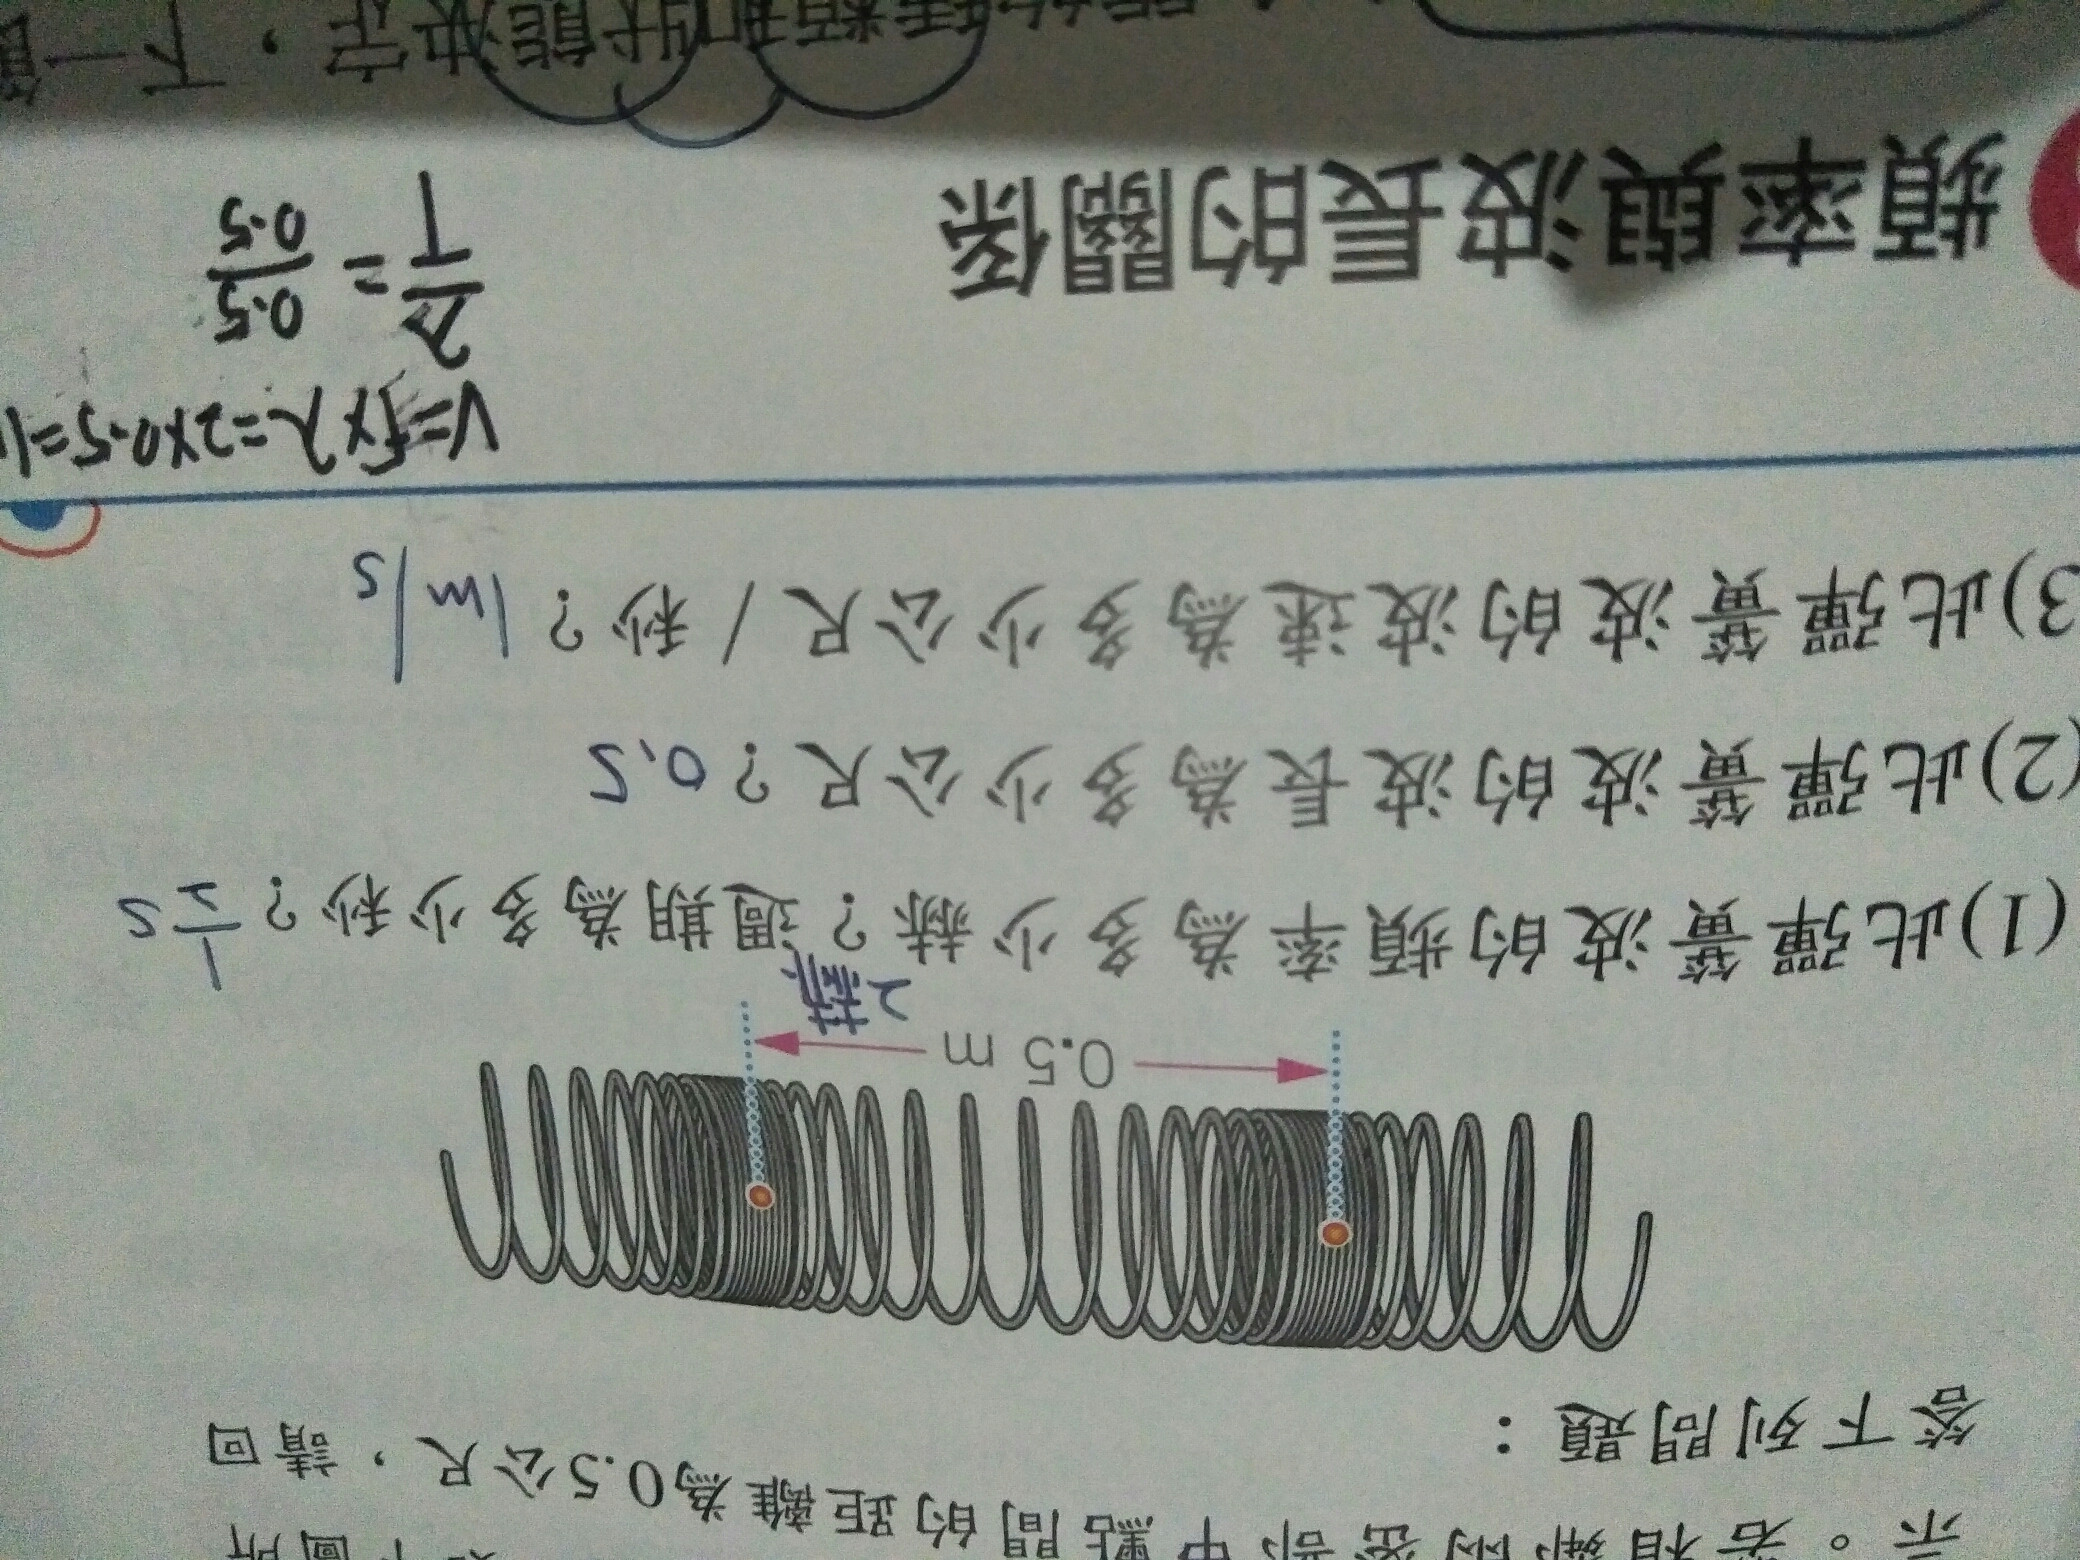 示。若相鄰兩密部中點間的距離為0.5公尺，請回
答下列問題：
0.5 m
2赫
(1)此彈簧波的頻率為多少赫？週期為多少秒？ 1/2 s
(2)此彈簧波的波長為多少公尺？ 0.5
3)此彈簧波的波速為多少公尺/秒？ 1m/s
V=f×λ=2×0.5=1
λ/T = 0.5/0.5
頻率與波長的關係
決定，下一